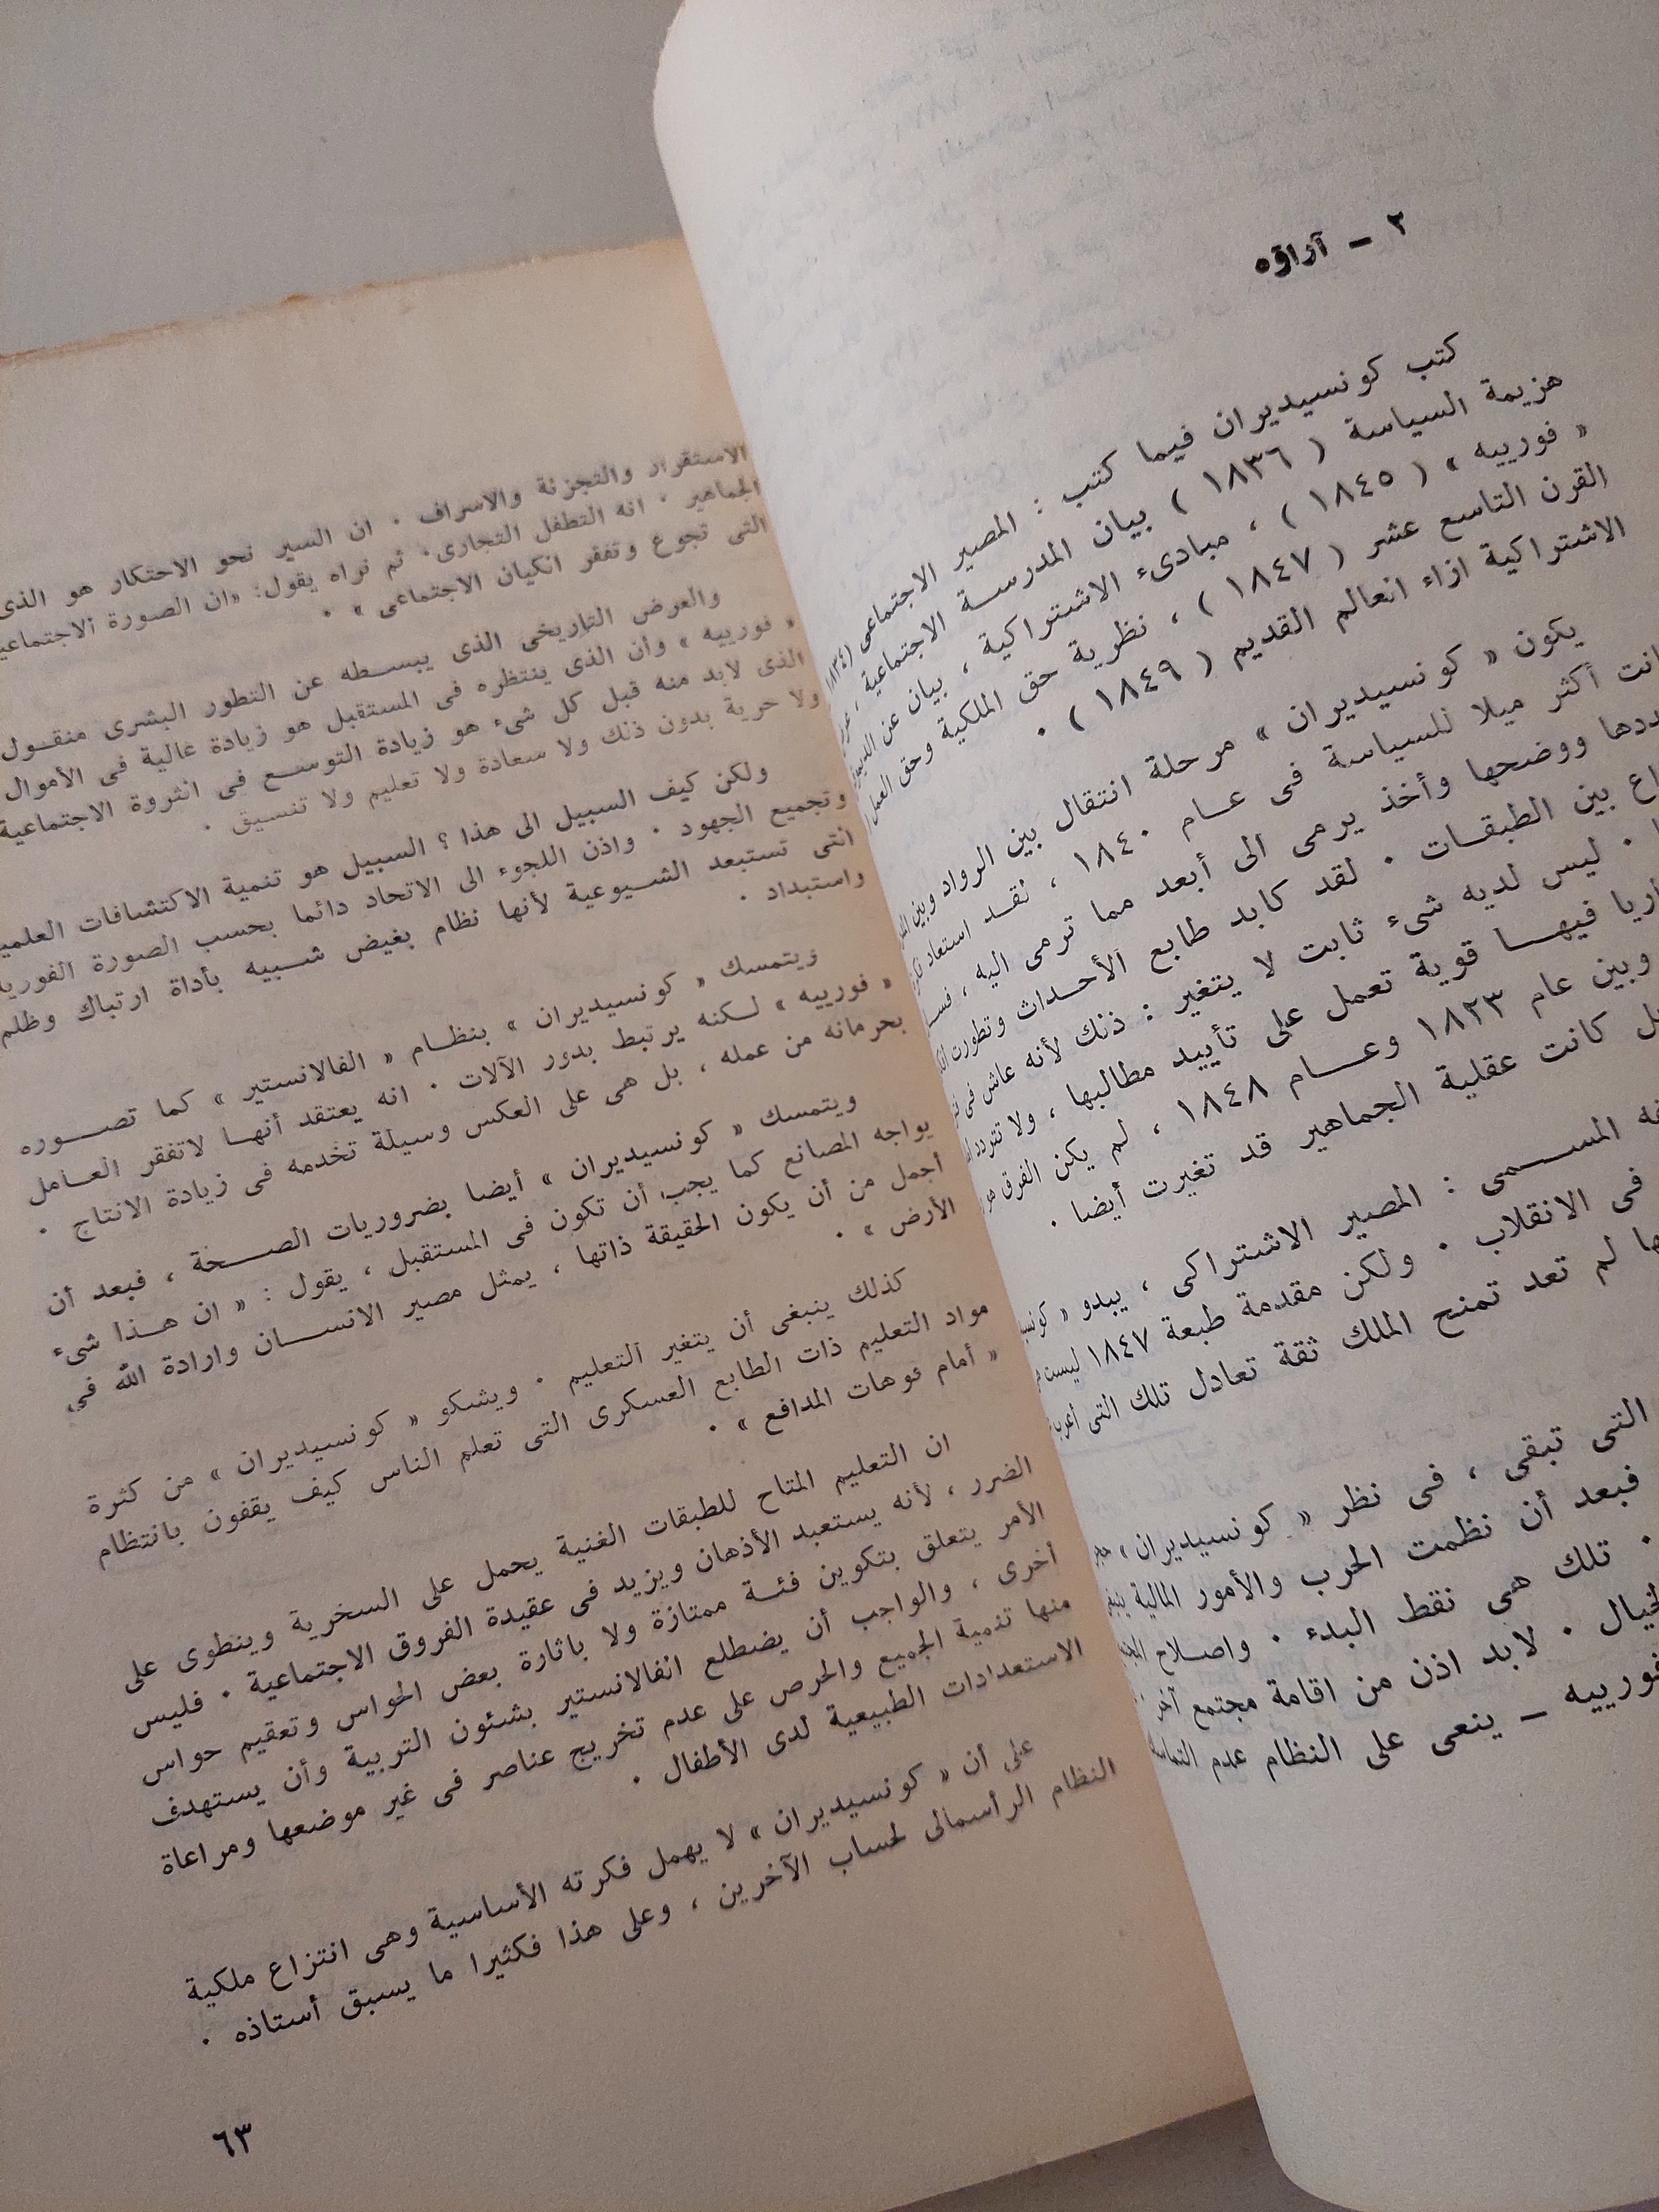 ٢ - آراؤه
كتب كونسيديران فيما كتب : المصير الاجتماعى (١٨٣٤
هزيمة السياسة ( ١٨٣٦ ) بيان المدرسة الاجتماعية ،
« فورييه » ( ١٨٤٥ ) ، مبادىء الاشتراكية ، بيان عن
القرن التاسع عشر ( ١٨٤٧ ) ، نظرية حق الملكية وحق العمل
الاشتراكية ازاء انعالم القديم ( ١٨٤٩ ) .
يكون « كونسيديران » مرحلة انتقال بين الرواد وبين
أكثر ميلا للسياسة فى عـام ١٨٤٠ ، لقـد استعاد
ووضحها وأخذ يرمى الى أبعد مما ترمى اليه ،
بين الطبقـات . لقد كابد طابع الأحـداث وتطورت
. ليس لديه شىء ثابت لا يتغير : ذنك لأنه عاش فى
فيهـا قوية تعمل على تأييد مطالبها ، ولا تتردد
وبين عام ١٨٢٣ وعـام ١٨٤٨ ، لم يكن الفرق هو
كانت عقلية الجماهير قد تغيرت أيضا .
المسـمى : المصير الاشتراكى ، يبدو «
فى الانقلاب . ولكن مقدمة طبعة ١٨٤٧ ليست
لم تعد تمنح الملك ثقة تعادل تلك التى
التى تبقى ، فى نظر « كونسيديران »
فبعد أن نظمت الحرب والأمور المالية
. تلك هى نقط البدء . واصـلاح
. لابد اذن من اقامة مجتمع آخر
فورييه - ينعى على النظام عدم
الاستقرار والتجزئة والاسراف . ان السير نحو الاحتكار هو الذى
الجماهير . انه التطفل التجارى . ثم نراه يقول: «ان الصورة
التى تجوع وتفقر انكيان الاجتماعى » .
والعرض التاريخى الذى يبسـطه عن التطور البشرى منقـول
« فورييه » وأن الذى ينتظره فى المستقبل هو زيادة عالية فى الأموال
الذى لابد منه قبل كل شىء هو زيادة التوسـع فى انثروة الاجتماعية
ولا حرية بدون ذلك ولا سعادة ولا تعليم ولا تنسيق .
ولكن كيف السبيل الى هذا ؟ السبيل هو تنمية الاكتشافات
وتجميع الجهود . واذن اللجوء الى الاتحاد دائما بحسب الصورة
انتى تستبعد الشـيوعية لأنها نظام بغيض شـبيه بأداة ارتباك وظلم
واستبداد .
ويتمسك « كونسيديران » بنظـام « الفالانستير » كما تصـوره
« فورييه » لـكنه يرتبط بدور الآلات . انه يعتقد أنهـا لاتفقر العـامل
بحرمانه من عمله ، بل هى على العكس وسيلة تخدمه فى زيادة الانتاج .
ويتمسك « كونسيديران » أيضا بضروريات الصـحة ، فبعد أن
يواجه المصانع كما يجب أن تكون فى المستقبل ، يقول : « ان هـذا شىء
أجمل من أن يكون الحقيقة ذاتها ، يمثل مصير الانسـان وارادة الله فى
الأرض » .
كذلك ينبغى أن يتغير التعليم . ويشكو « كونسيديران » من كثرة
مواد التعليم ذات الطابع العسكرى التى تعلم الناس كيف يقفون بانتظام
« أمام فوهات المدافع » .
ان التعليم المتاح للطبقات الغنية يحمل على السخرية وينطوى على
الضرر ، لأنه يستعبد الأذهان ويزيد فى عقيدة الفروق الاجتماعية . فليس
الأمر يتعلق بتكوين فئـة ممتازة ولا باثارة بعض الحواس وتعقيم حواس
أخرى ، والواجب أن يضطلع انفالانستير بشئون التربية وأن يستهدف
منها تنمية الجميع والحرص على عدم تخريج عناصر فى غير موضعها ومراعاة
الاستعدادات الطبيعية لدى الأطفال .
على أن « كونسيديران » لا يهمل فكرته الأساسية وهى انتزاع ملكية
النظام الرأسمالى لحساب الآخرين ، وعلى هذا فكثيرا ما يسبق أستاذه .
٦٣